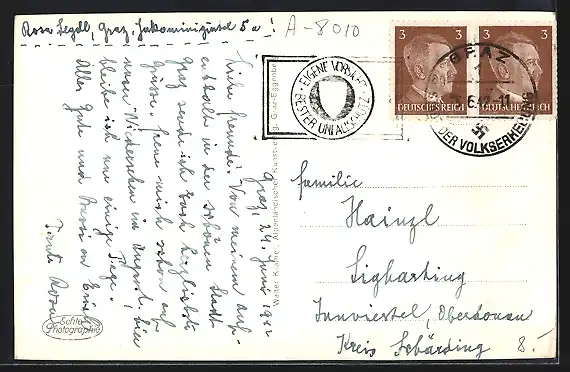 Rosa Segell, Graz, Jakominigürtel 5a!
A-8010
Graz, 24. Juni 1942
Liebe Freunde! Von meinem Auf-
enthalte in der schönen Stadt
Graz sende ich Euch herzlichste
Grüsse. freue mich schon auf
unser Wiedersehen im August, hier
bleibe ich nur einige Tage.
Alles Gute und Bussi an Erich
Tante Rosa
Echte
Photographie
Eggenberg
Alpenländischer Kunstverlag
EIGENE VORSICHT
BESTER UNFALLSCHUTZ
3 3
DEUTSCHES REICH
3 3
DEUTSCHES REICH
GRAZ
DER VOLKSERHEBUNG
Familie
Hainzl
Sigharting
Innviertel, Oberdonau
Kreis Schärding
8.-